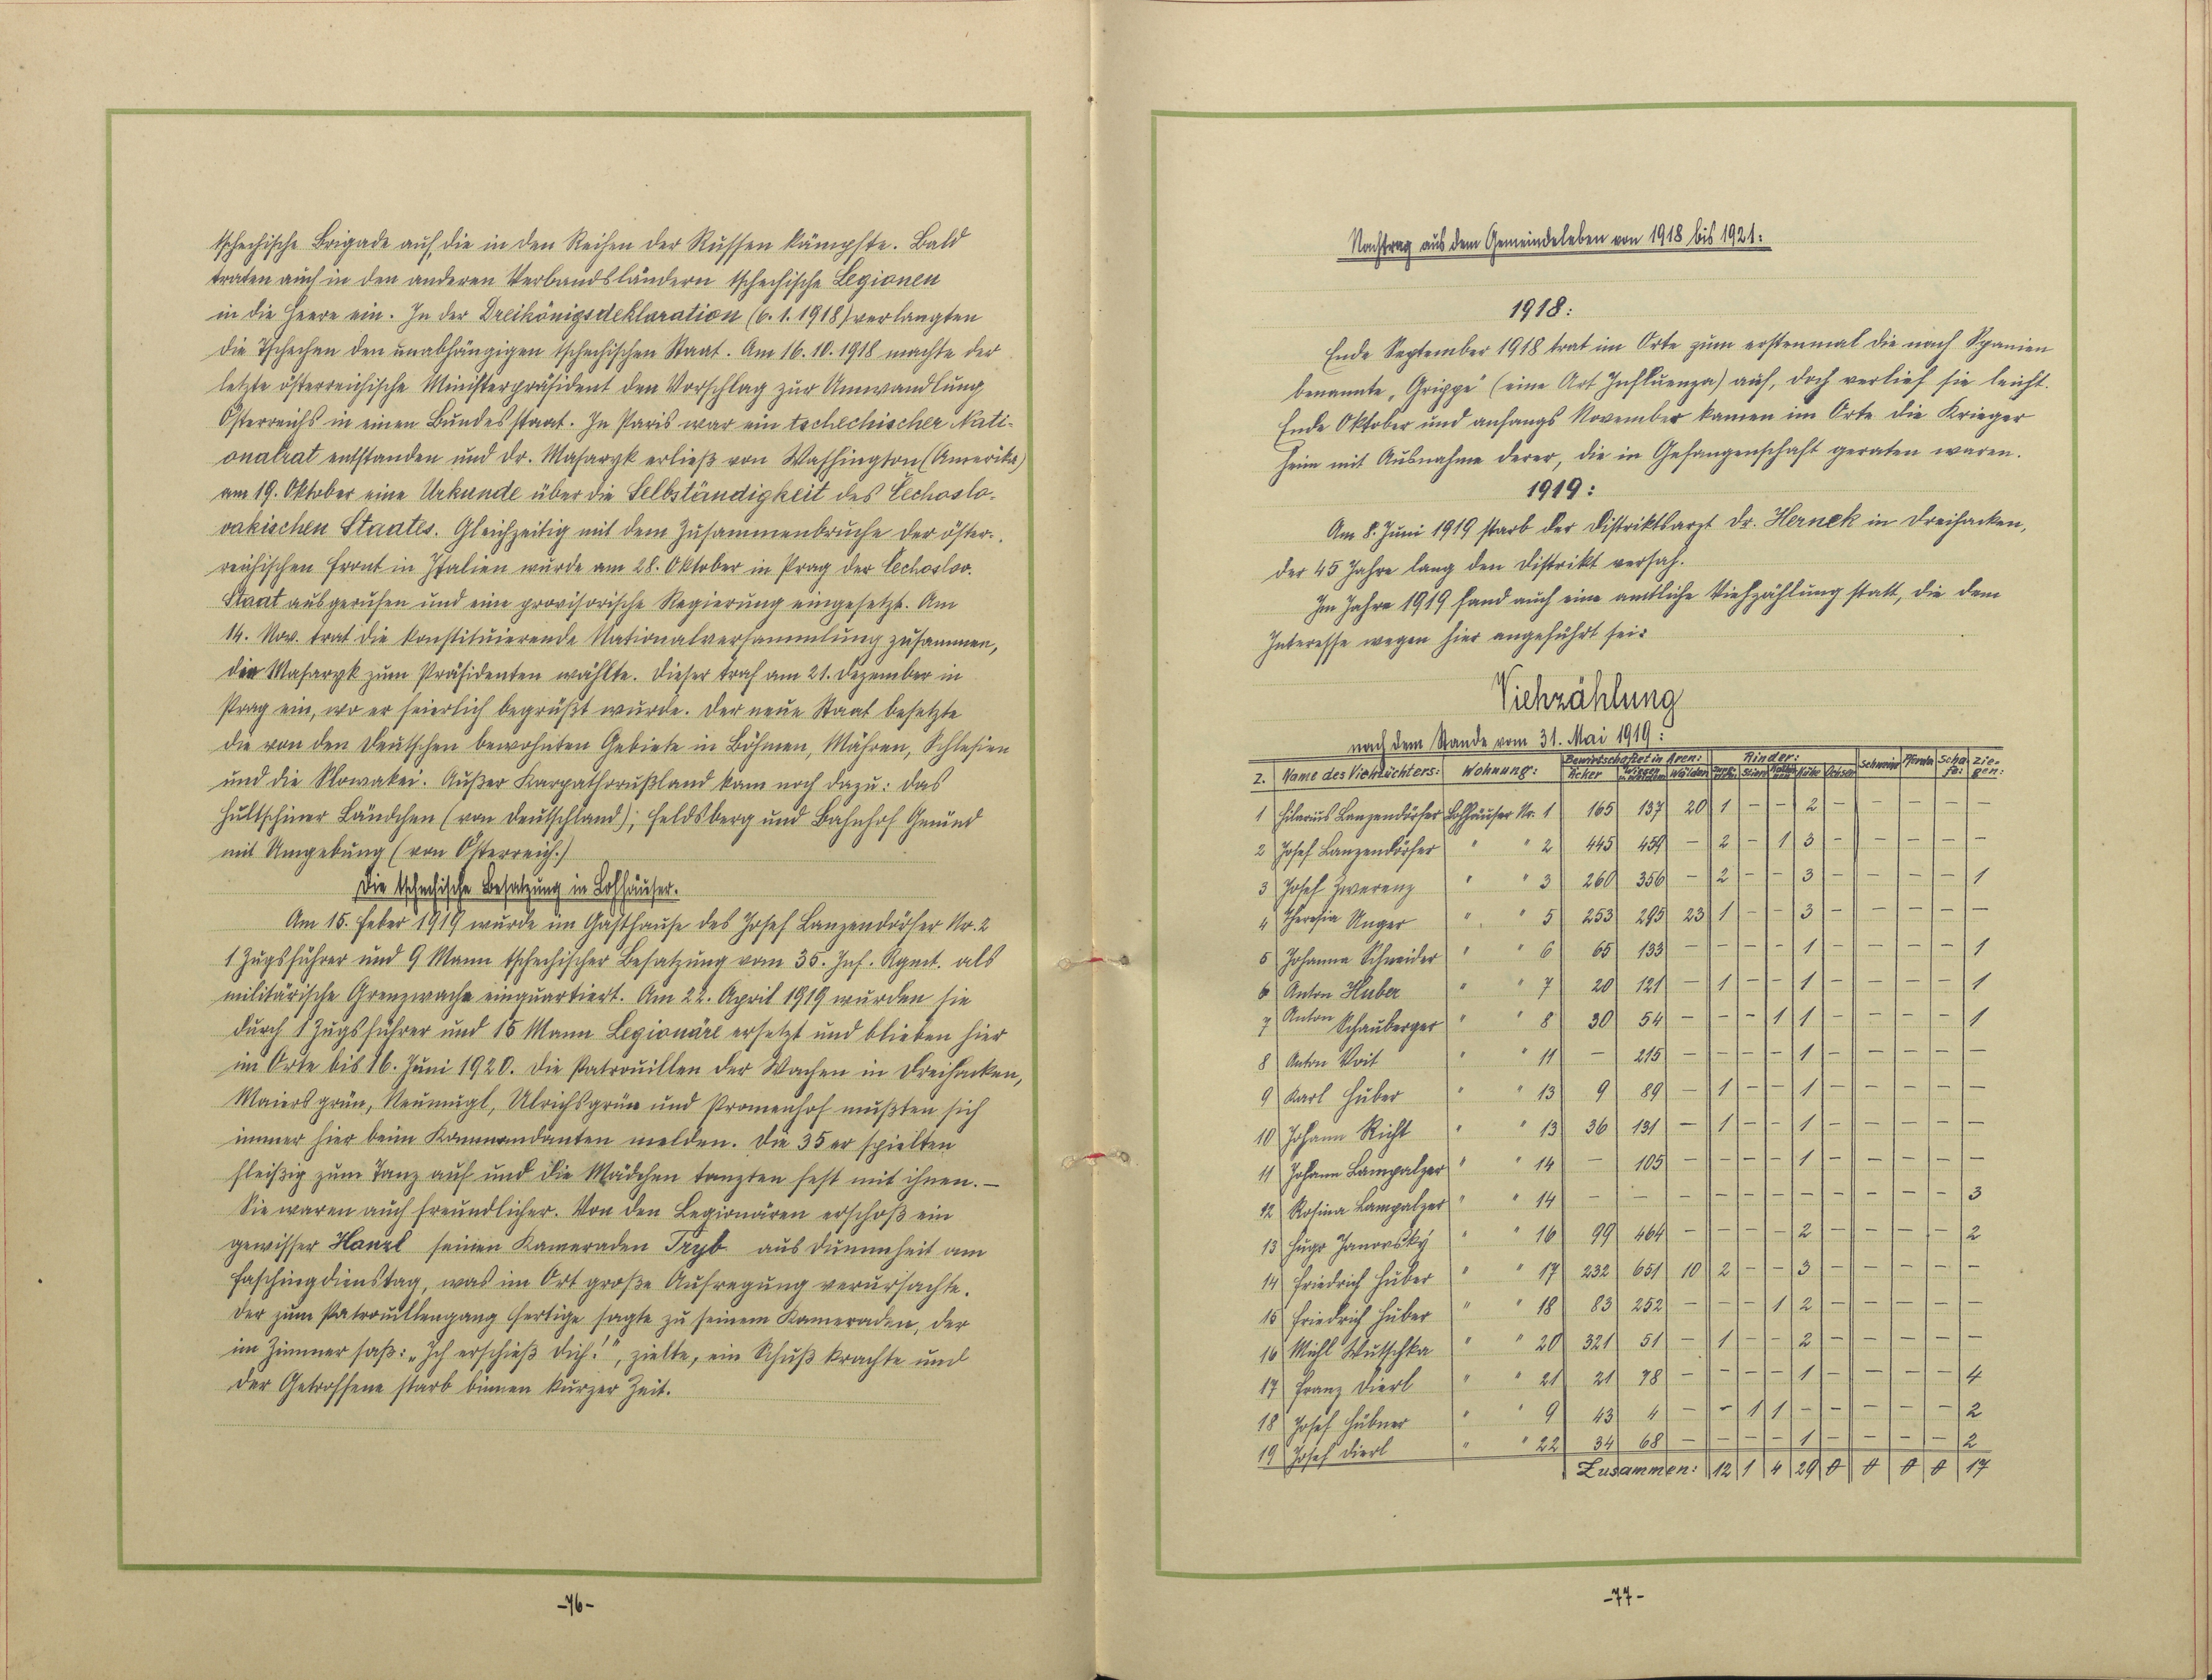 tschechische Brigade auf, die in den Reihen der Russen kämpfte. Bald
traten auch in den anderen Verbandsländern tschechische Legionen
in die Heere ein. In der Dreikönigsdeklaration (6. 1. 1918) verlangten
die Tschechen den unabhängigen tschechischen Staat. Am 16. 10. 1918 machte der
letzte österreichische Ministerpräsident den Vorschlag zur Umwandlung
Österreichs in einen Bundesstaat. In Paris war ein tschechischer Nati-
onalrat entstanden und Dr. Masaryk erließ von Washington (Amerika)
am 19. Oktober eine Urkunde über die Selbständigkeit des Čechoslo-
vakischen Staates. Gleichzeitig mit dem Zusammenbruche der öster-
reichischen Front in Italien wurde am 28. Oktober in Prag der Čechoslov.
Staat ausgerufen und eine provisorische Regierung eingesetzt. Am
14. Nov. trat die konstituierende Nationalversammlung zusammen,
die Masaryk zum Präsidenten wählte. Dieser traf am 21. Dezember in
Prag ein, wo er feierlich begrüßt wurde. Der neue Staat besetzte
die von den Deutschen bewohnten Gebiete in Böhmen, Mähren, Schlesien
und die Slowakei. Außer Karpathorußland kam noch dazu: das
Hultschiner Ländchen (von Deutschland); Feldsberg und Bahnhof Gmünd
mit Umgebung (von Österreich.)
Die tschechische Besatzung in Lohhäuser.
Am 15. Feber 1919 wurde im Gasthause des Josef Lanzendörfer Nr. 2
1 Zugsführer und 9 Mann tschechischer Besatzung vom 35. Inf. Rgmt. als
militärische Grenzwache einquartiert. Am 22. April 1919 wurden sie
durch 1 Zugsführer und 15 Mann Legionäre ersetzt und blieben hier
im Orte bis 16. Juni 1920. Die Patrouillen der Wachen in Dreihacken,
Maiersgrün, Neumugl, Ulrichsgrün und Promenhof mußten sich
immer hier beim Kommandanten melden. Die 35er spielten
fleißig zum Tanz auf und die Mädchen tanzten fest mit ihnen. –
Sie waren auch freundlicher. Von den Legionären erschoß ein
gewisser Hanzl seinen Kameraden Tryb aus Dummheit am
Faschingdienstag, was im Ort große Aufregung verursachte.
Der zum Patrouillengang fertige sagte zu seinem Kameraden, der
im Zimmer saß: „Ich erschieß dich!", zielte, ein Schuß krachte und
der Getroffene starb binnen kurzer Zeit.
-76-
Nachtrag aus dem Gemeindeleben von 1918 bis 1921:
1918:
Ende September 1918 trat im Orte zum erstenmal die nach Spanien
benannte „Grippe" (eine Art Influenza) auf, doch verlief sie leicht.
Ende Oktober und anfangs November kamen im Orte die Krieger
heim mit Ausnahme derer, die in Gefangenschaft geraten waren.
1919:
Am 8. Juni 1919 starb der Distriktsarzt Dr. Hernek in Dreihacken,
der 45 Jahre lang den Distrikt versah.
Im Jahre 1919 fand auch eine amtliche Viehzählung statt, die dem
Interesse wegen hier angeführt sei:
Viehzählung
nach dem Stande vom 31. Mai 1919:
Z. Name des Viehzüchters: Wohnung: Bewirtschaftet in Aren: Rinder: Schweine Pferde Scha- Zie-
Äcker Wiesen Wälder Stiere Kühe Ochsen fe: gen:
1 Hilarius Lanzendörfer Lohhäuser Nr. 1 165 137 20 1 – – 2 – – – – –
2 Josef Lanzendörfer " " 2 445 459 – 2 – 1 3 – – – – –
3 Josef Zwerenz " " 3 260 356 – 2 – – 3 – – – – 1
4 Theresia Unger " " 5 253 295 23 1 – – 3 – – – – –
5 Johanna Schneider " " 6 65 133 – – – – 1 – – – – 1
6 Anton Huber " " 7 20 121 – 1 – – 1 – – – – 1
7 Anton Schauberger " " 8 30 54 – – – 1 1 – – – – 1
8 Anton Voit " " 11 – 215 – – – – 1 – – – – –
9 Karl Huber " " 13 9 89 – 1 – – 1 – – – – –
10 Johann Richt " " 13 36 131 – 1 – – 1 – – – – –
11 Johann Lampalzer " " 14 – 105 – – – – 1 – – – – –
12 Rosina Lampalzer " " 14 – – – – – – – – – – – 3
13 Hugo Janovský " " 16 99 464 – – – – 2 – – – – 2
14 Friedrich Huber " " 17 232 651 10 2 – – 3 – – – – –
15 Friedrich Huber " " 18 83 252 – – – 1 2 – – – – –
16 Michl Wutschka " " 20 321 51 – 1 – – 2 – – – – –
17 Franz Dierl " " 21 21 78 – – – – 1 – – – – 4
18 Josef Hübner " " 9 43 4 – – 1 1 – – – – – 2
19 Josef Dierl " " 22 34 68 – – – – 1 – – – – 2
Zusammen: 12 1 4 29 0 0 0 0 17
-77-